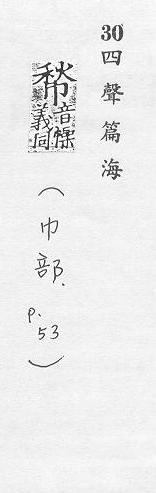 30四聲篇海
音幧義同
(巾部. p.53)